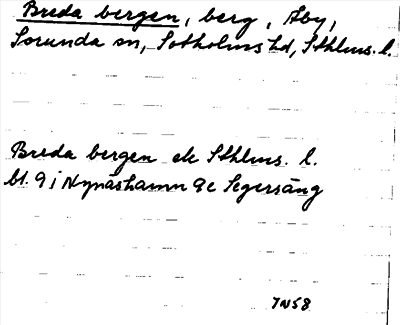 Breda bergen, berg, Åby,
Sorunda sn, Sotholms hd, Sthlms. l.
Breda bergen ek Sthlms. l.
bl. 9 i Nynäshamn 9c Segersäng
IN58